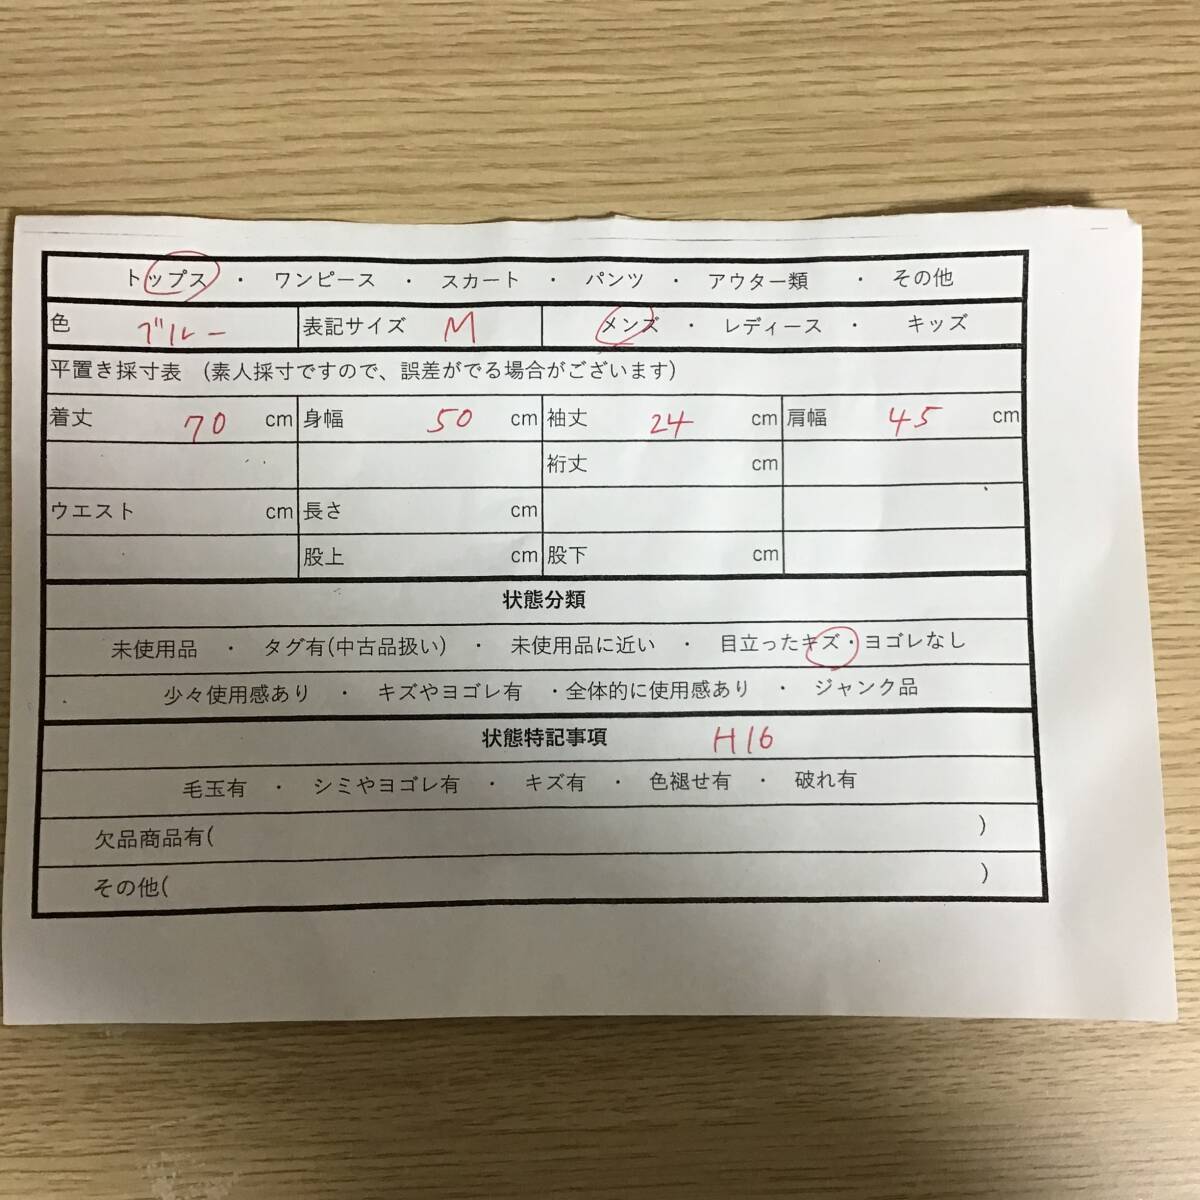 トップス ・ ワンピース ・ スカート ・ パンツ ・ アウター類 ・ その他
色 ブルー 表記サイズ M メンズ ・ レディース ・ キッズ
平置き採寸表 (素人採寸ですので、誤差がでる場合がございます)
着丈 70 cm 身幅 50 cm 袖丈 24 cm 肩幅 45 cm
裄丈 cm
ウエスト cm 長さ cm
股上 cm 股下 cm
状態分類
未使用品 ・ タグ有(中古品扱い) ・ 未使用品に近い ・ 目立ったキズ・ヨゴレなし
少々使用感あり ・ キズやヨゴレ有 ・全体的に使用感あり ・ ジャンク品
状態特記事項 H16
毛玉有 ・ シミやヨゴレ有 ・ キズ有 ・ 色褪せ有 ・ 破れ有
欠品商品有( )
その他( )